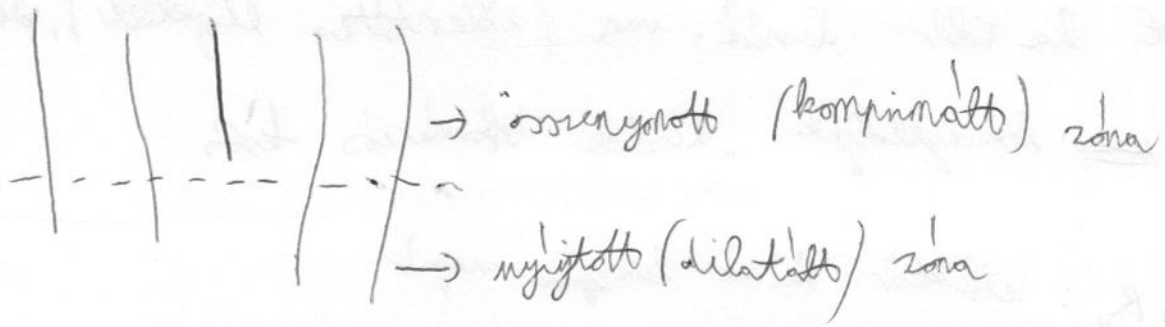 → összenyomott (komprimált) zóna
→ nyújtott (dilatált) zóna